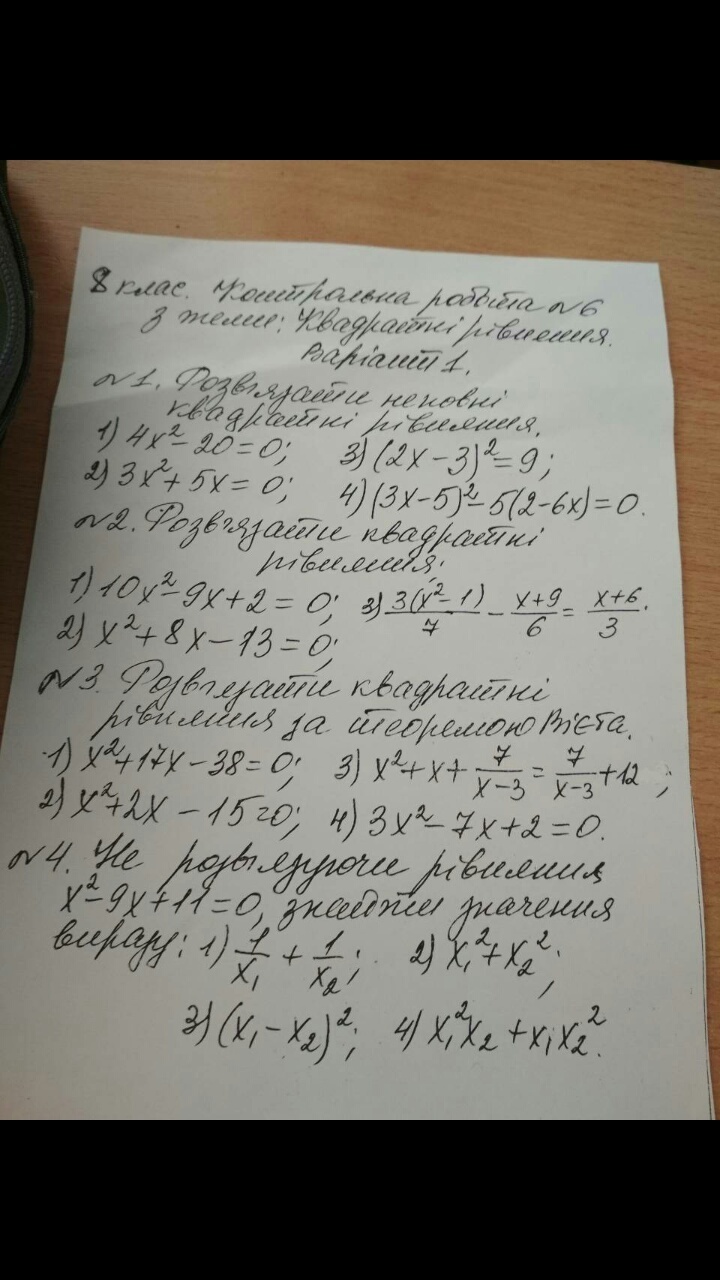 8 клас. Контрольна робота №6
з теми: Квадратні рівняння.
Варіант 1.
№1. Розв'язати неповні
квадратні рівняння.
1) 4x² - 20 = 0; 3) (2x - 3)² = 9;
2) 3x² + 5x = 0; 4) (3x - 5)² - 5(2 - 6x) = 0.
№2. Розв'язати квадратні
рівняння:
1) 10x² - 9x + 2 = 0; 3) 3(x² - 1)/7 - x+9/6 = x+6/3.
2) x² + 8x - 13 = 0;
№3. Розв'язати квадратні
рівняння за теоремою Вієта.
1) x² + 17x - 38 = 0; 3) x² + x + 7/x-3 = 7/x-3 + 12;
2) x² + 2x - 15 = 0; 4) 3x² - 7x + 2 = 0.
№4. Не розв'язуючи рівняння
x² - 9x + 11 = 0, знайти значення
виразу: 1) 1/x₁ + 1/x₂; 2) x₁² + x₂²;
3) (x₁ - x₂)²; 4) x₁²x₂ + x₁x₂².